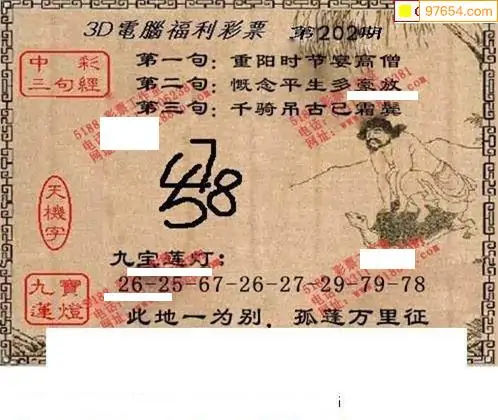 97654.com
3D電腦福利彩票 第202期
中彩
三句經
第一句：重阳时节宴高僧
第二句：慨念平生多豪放
第三句：千骑吊古已霜鬓
天機字
4578
九宝莲灯：
九寶
蓮燈
26-25-67-26-27-29-79-78
此地一为别，孤蓬万里征